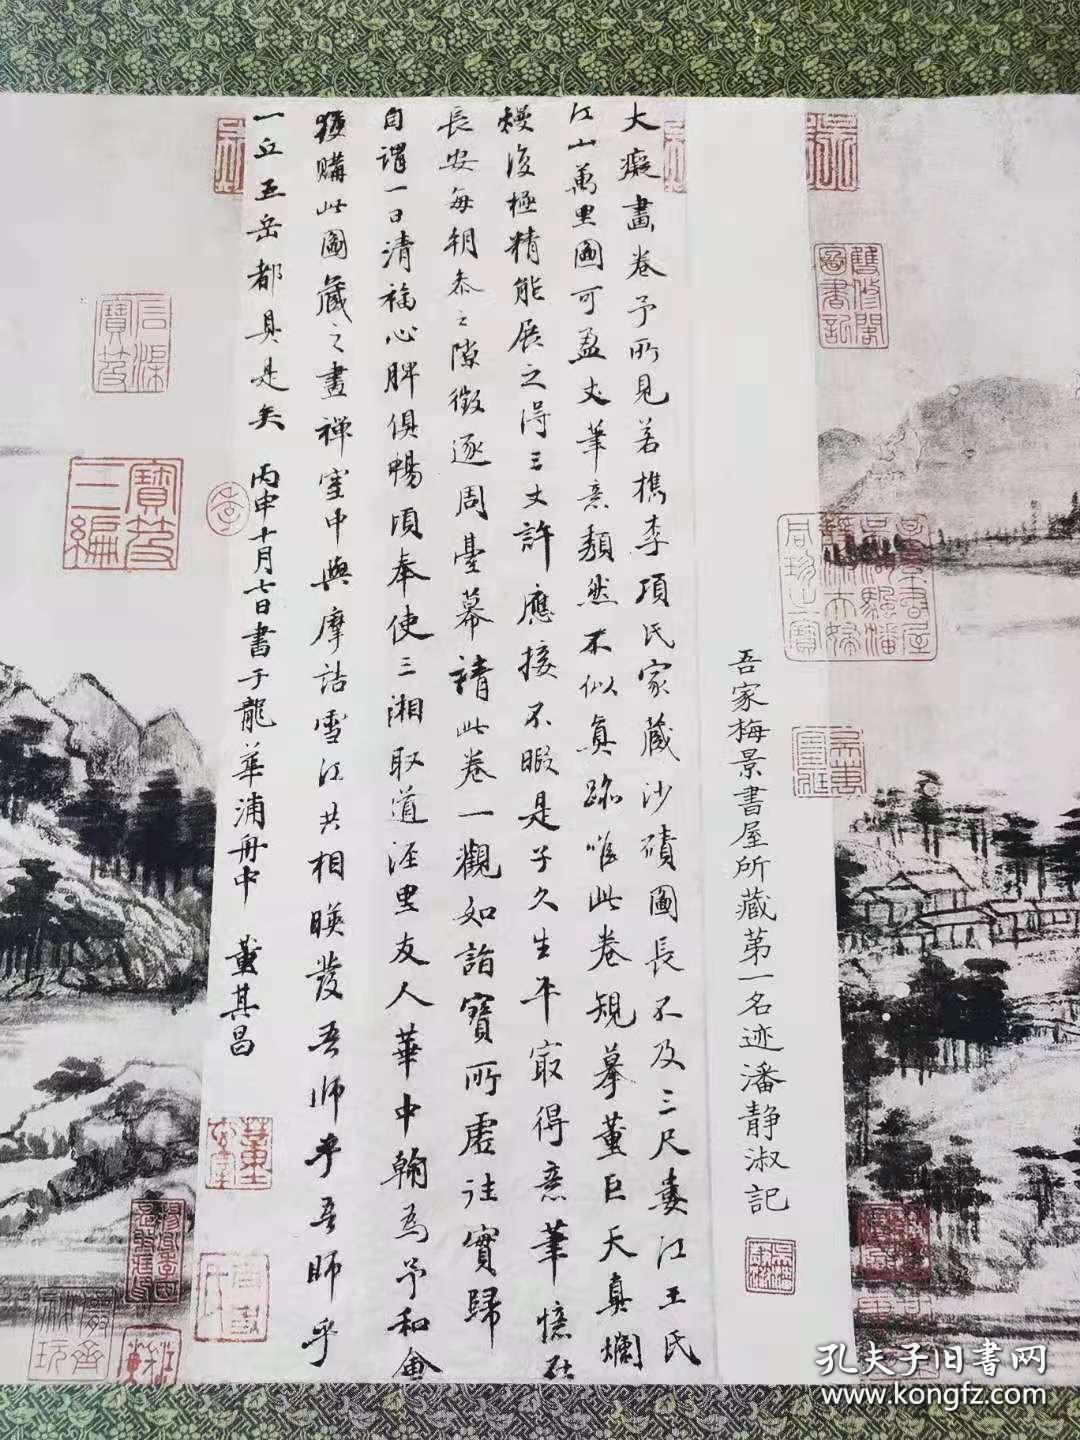 吾家梅景書屋所藏第一名迹潘静淑記
大癡畫卷予所見若檇李項氏家藏沙磧圖長不及三尺婁江王氏
江山萬里圖可盈丈筆意頽然不似真跡唯此卷規摹董巨天真爛
熳復極精能展之得三丈許應接不暇是子久生平㝡得意筆憶在
長安每朝叅之隙徵逐周臺幕請此卷一觀如詣寶所虛往實歸
自謂一日清福心脾俱暢頃奉使三湘取道涇里友人華中翰為予和會
獲購此圖藏之畫禪室中與摩詰雪江共相暎發吾師乎吾師乎
一丘五岳都具是矣 丙申十月七日書于龍華浦舟中 董其昌
雙修閣圖書記
寶笈三編
孔夫子旧书网
www.kongfz.com